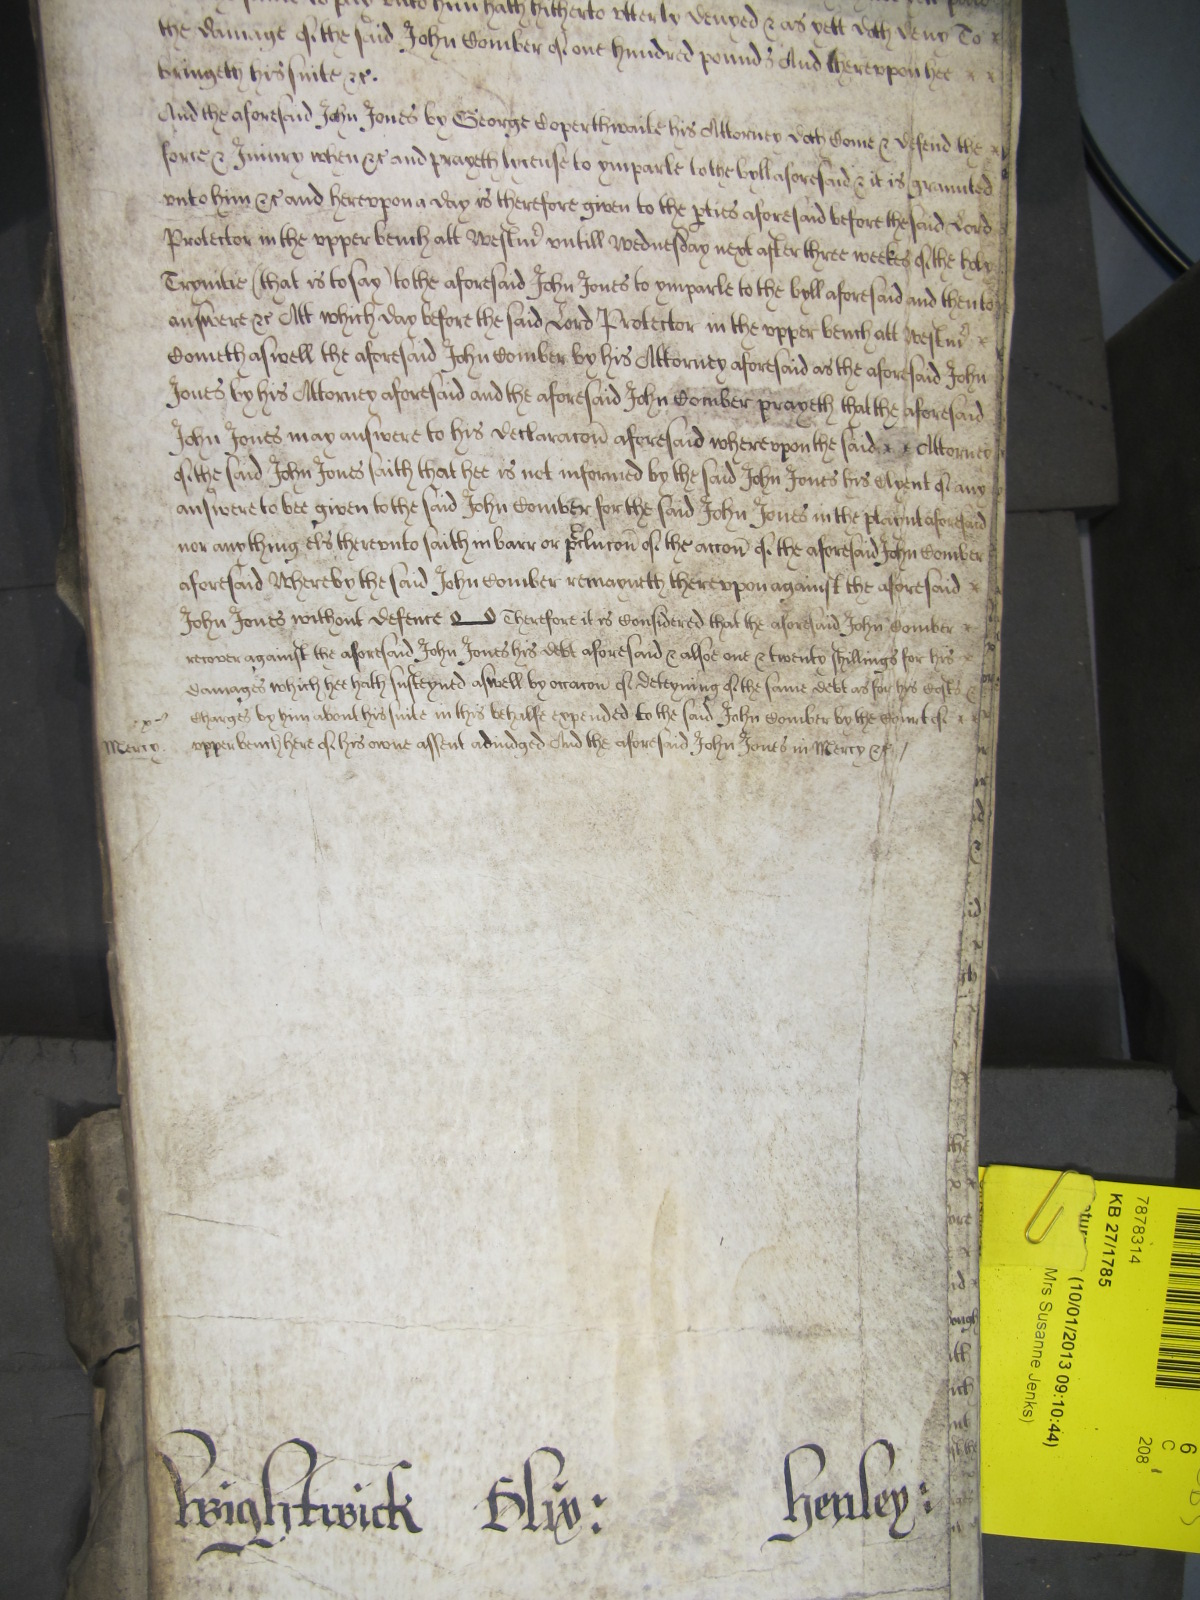 to pay unto him hath hitherto utterly denyed & as yett doth deny To
the damage of the said John Comber of one hundred pounds And thereuppon hee
bringeth his suite &c.
And the aforesaid John Jones by George Coperthwaite his Attorney doth Come & defend the
force & Iniury when &c and prayeth lycense to ymparle to the byll aforesaid & it is graunted
unto him &c and hereuppon a day is therefore given to the pties aforesaid before the said Lord
Protector in the upper bench att Westm̃ untill Wednesday next after three weekes of the holy
Trynitie (that is to say) to the aforesaid John Jones to ymparle to the byll aforesaid and then to
answere &c Att which day before the said Lord Protector in the upper bench att Westm̃
Cometh aswell the aforesaid John Comber by his Attorney aforesaid as the aforesaid John
Jones by his Attorney aforesaid and the aforesaid John Comber prayeth that the aforesaid
John Jones may answere to his declaracoñ aforesaid whereuppon the said Attorney
of the said John Jones saith that hee is not informed by the said John Jones his Clyent of any
answere to bee given to the said John Comber for the said John Jones in the playnt aforesaid
nor anything els thereunto saith in barr or p̃clucoñ of the accoñ of the aforesaid John Comber
aforesaid Whereby the said John Comber remayneth thereuppon against the aforesaid
John Jones without defence Therefore it is Considered that the aforesaid John Comber
recover against the aforesaid John Jones his debt aforesaid & alsoe one & twenty shillings for his
damages which hee hath susteyned aswell by occacoñ of deteyning of the same debt as for his Costs &
Charges by him about his suite in this behalfe expended to the said John Comber by the Court of
Mercy. upper bench here of his owne assent adiudged And the aforesaid John Jones in Mercy &c /
Wightwick Oliv: henley:
7878314
KB 27/1785
(10/01/2013 09:10:44)
Mrs Susanne Jenks)
6
C
208